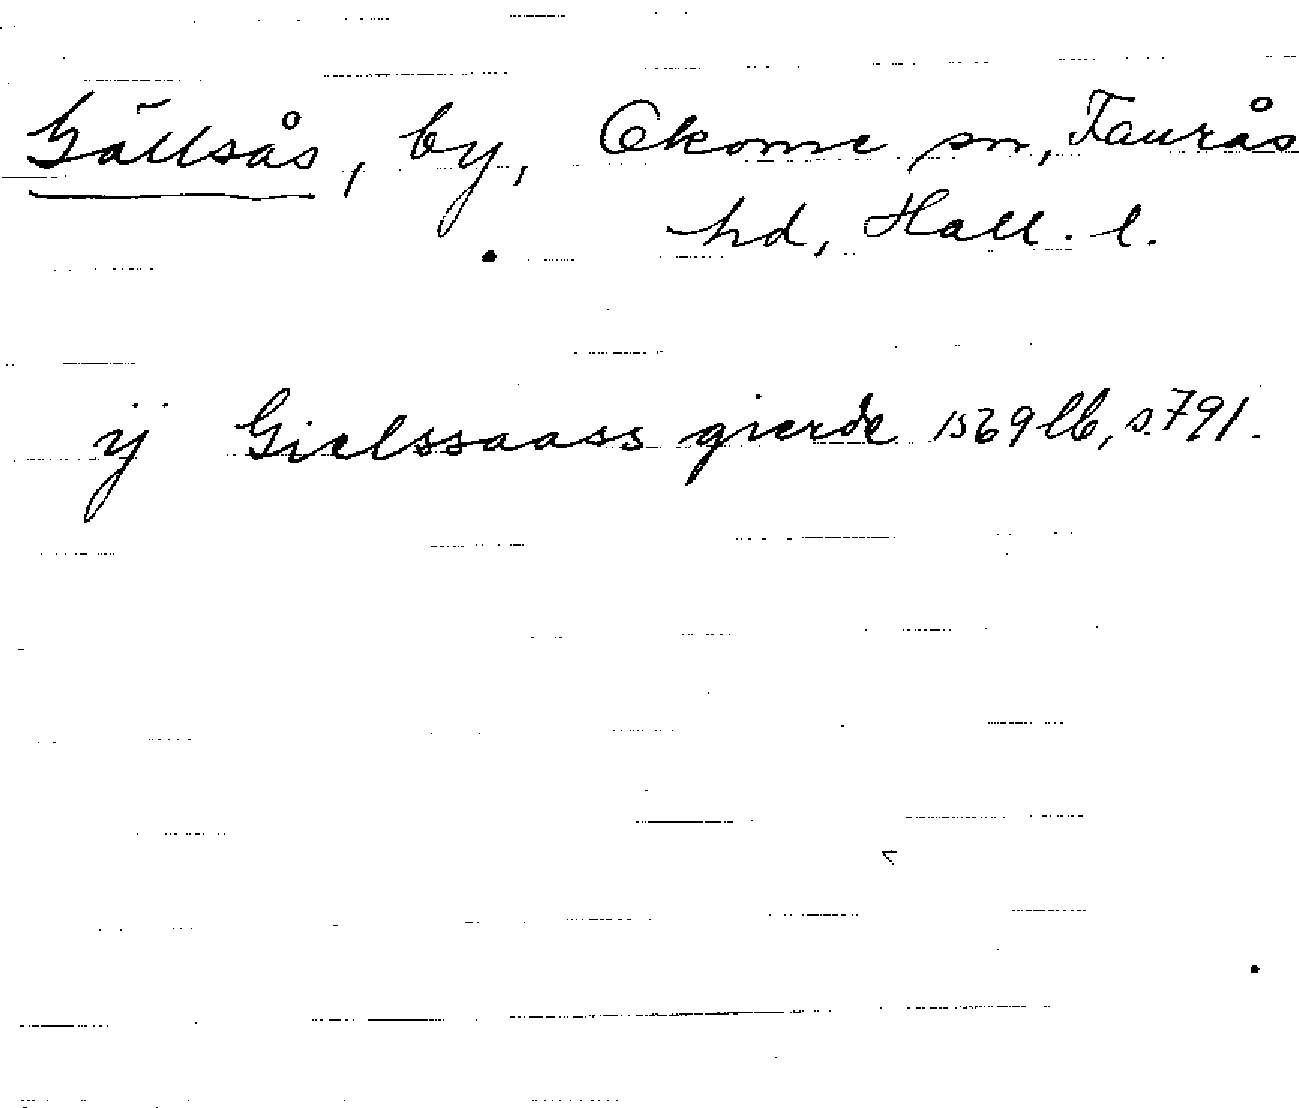 Gällsås, by, Okome sn, Faurås
hd, Hall. l.
ÿ Gielssaass gierde 1569 lb, s. 791.